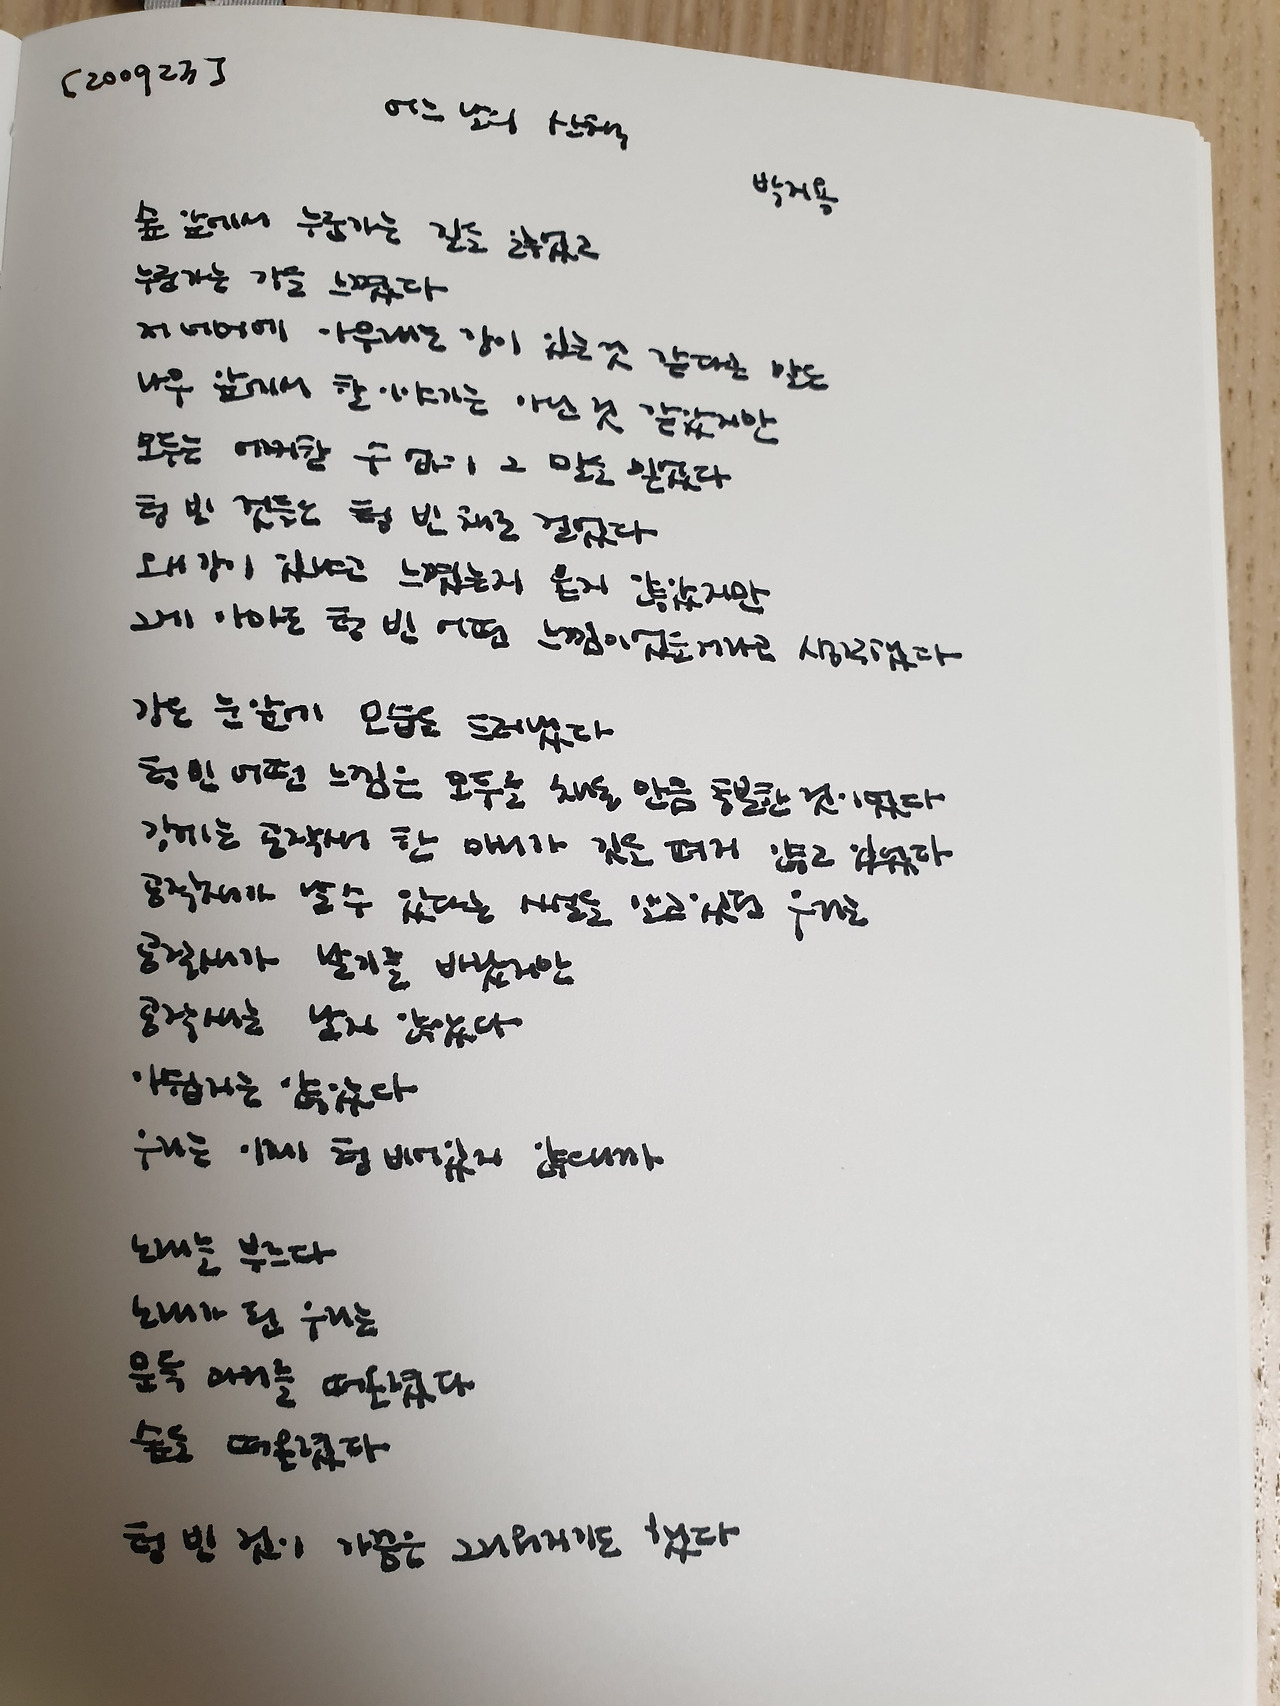 [200923]
어느 날의 산책
박지용
숲 앞에서 누군가는 길을 잃었고
누군가는 강을 느꼈다
저 너머에 아무래도 강이 있는 것 같다는 말은
나무 앞에서 할 이야기는 아닌 것 같았지만
모두는 어찌할 수 없이 그 말을 믿었다
텅 빈 것들은 텅 빈 채로 걸었다
왜 강이 있냐고 느꼈는지 묻지 않았지만
그게 아마도 텅 빈 어떤 느낌이었을거라고 생각했다
강은 눈앞에 모습을 드러냈다
텅 빈 어떤 느낌은 모두를 채울 만큼 충분한 것이었다
강에는 공작새 한 마리가 깃을 펴지 않고 있었다
공작새가 날 수 있다는 사실을 알고있던 우리는
공작새가 날기를 바랐지만
공작새는 날지 않았다
아쉽지는 않았다
우리는 이제 텅 비어있지 않으니까
노래를 부르다
노래가 된 우리는
문득 마리를 떠올렸다
숲을 떠올렸다
텅 빈 것이 가끔은 그리워지기도 했다